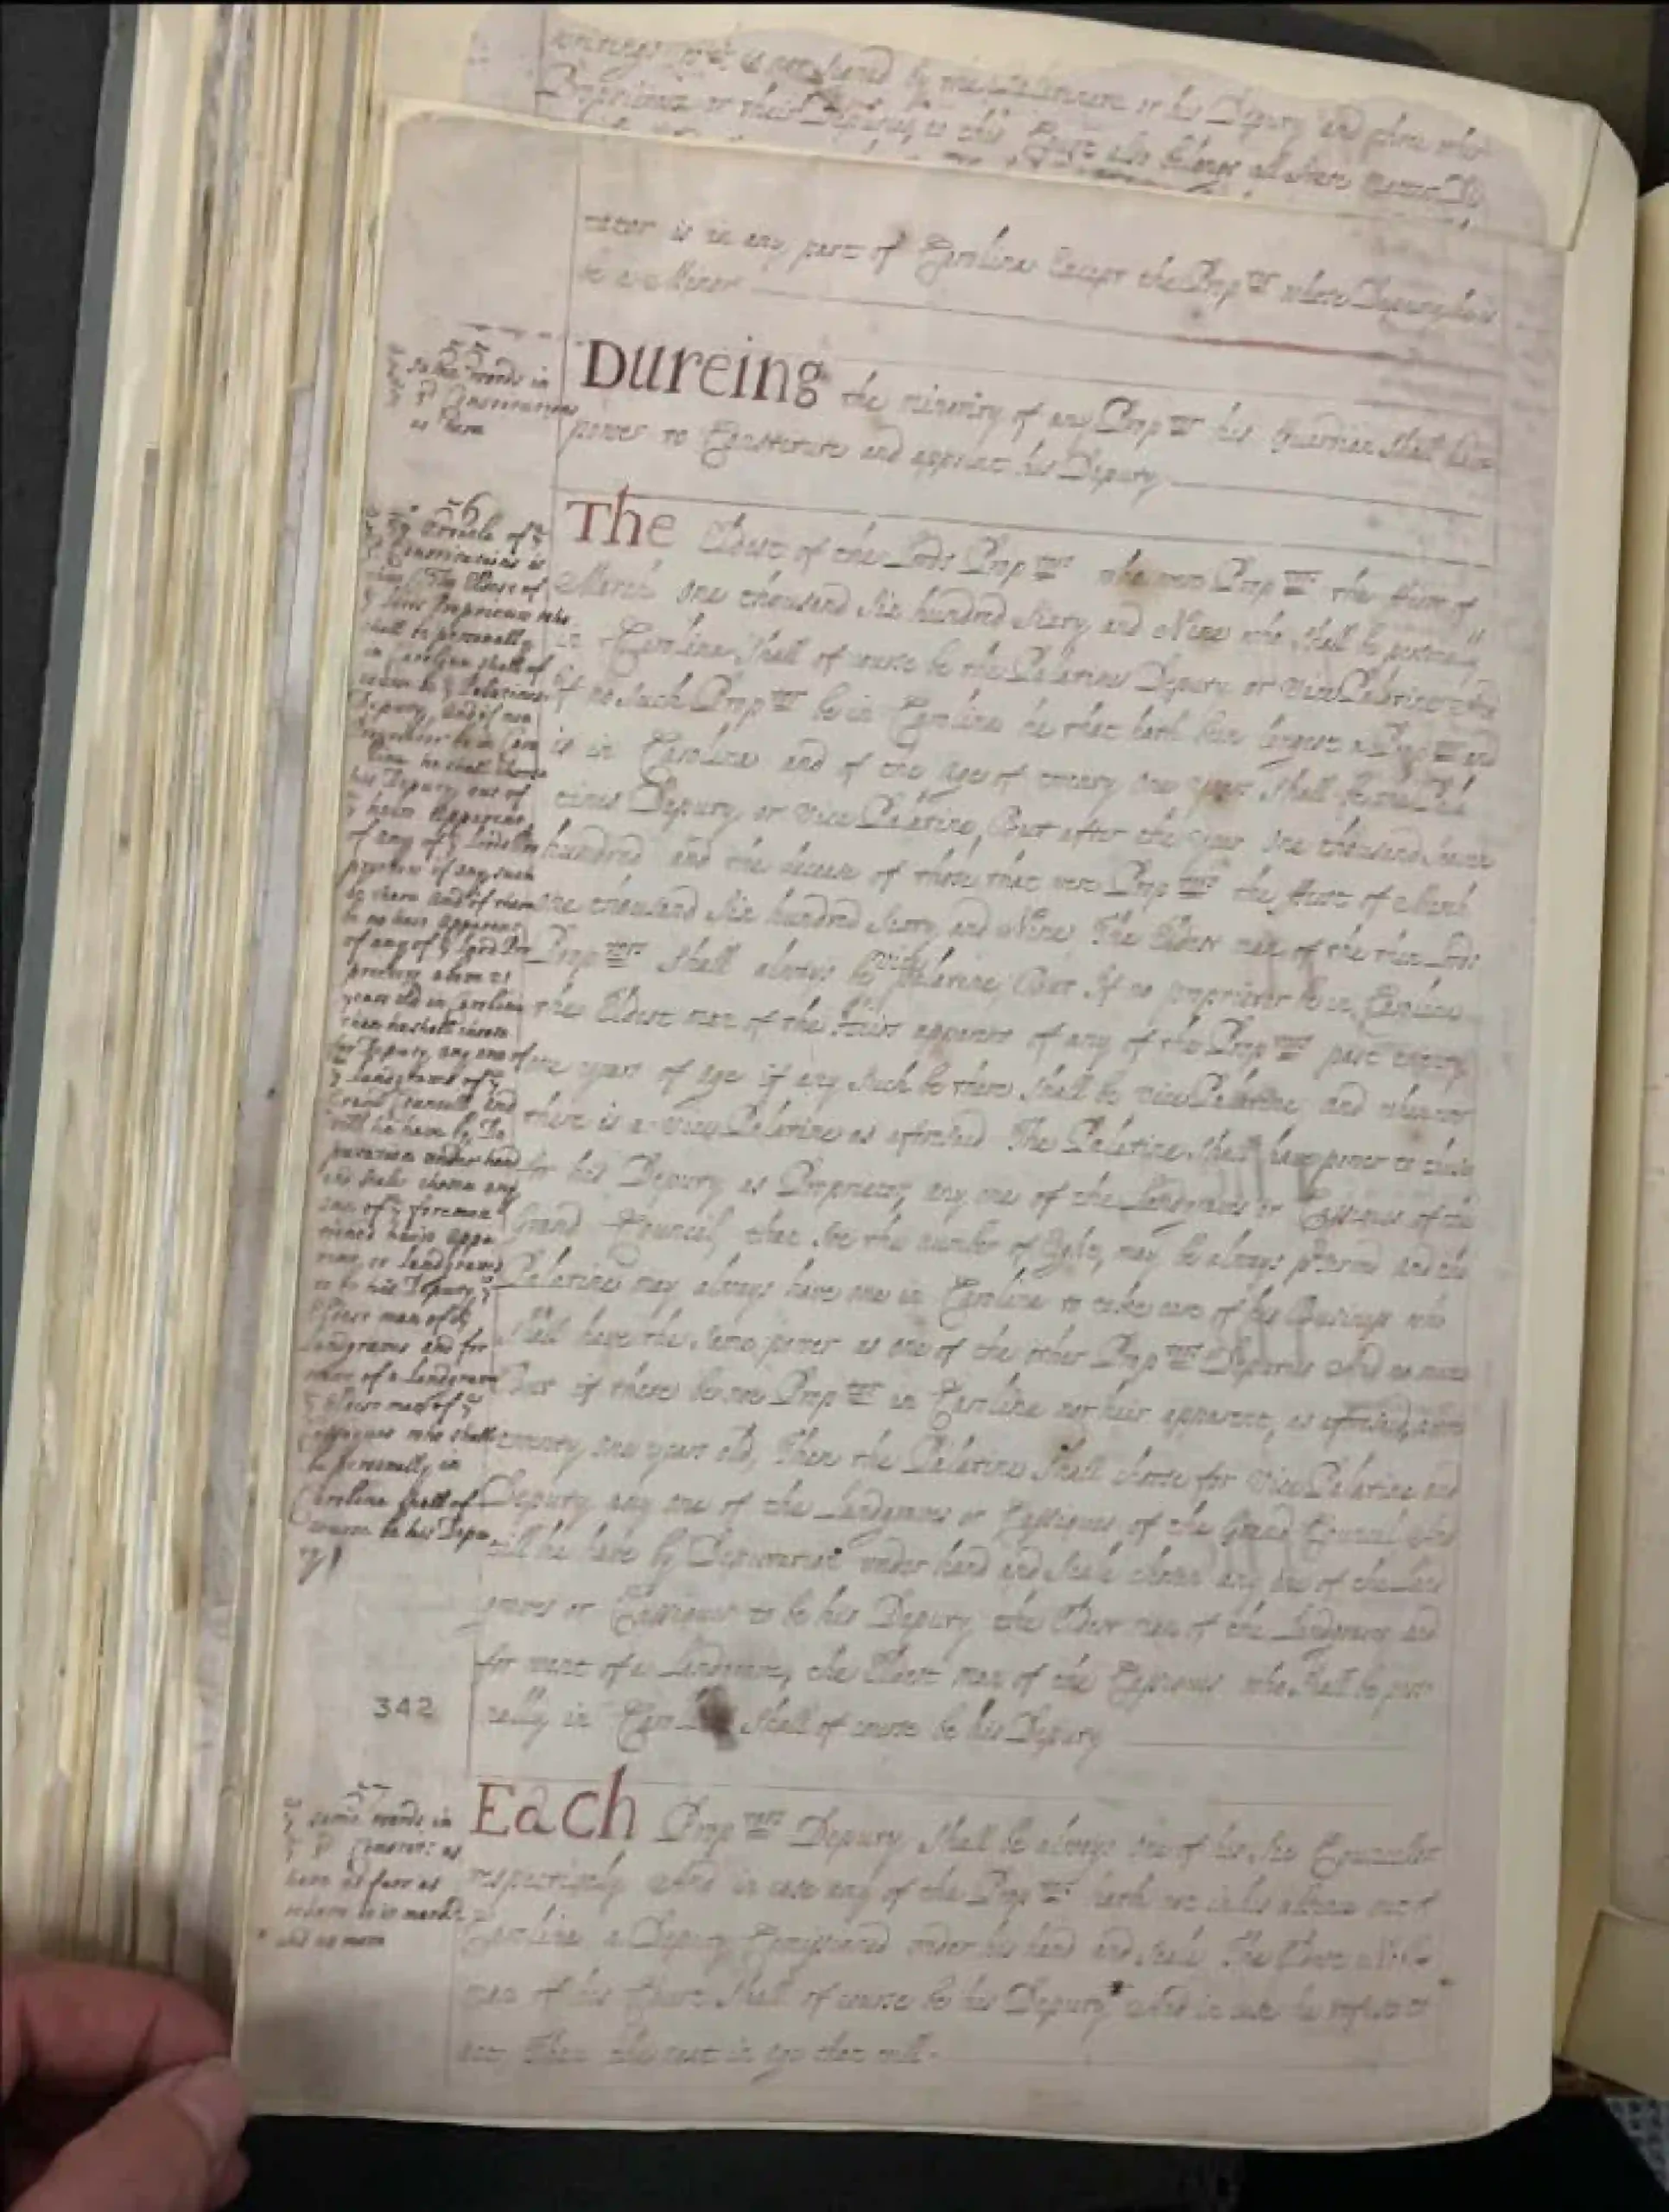 is not signed by the Palatine or his Deputy and three other
Proprietors or their Deputyes, to this Court also belongs all State Matters
rator is in any part of Carolina Except the Prop:tor whose Deputy he is
be a Minor
55
same words in
Constitutions
as here
Dureing the minority of any Prop:tor his Guardian Shall have
power to Constitute and appoint his Deputy
56
Article of
Constitutions is
thus The Eldest of
Lords Proprietors who
shall be personally
in Carolina shall of
course be Palatines
Deputy, and if noe
Proprietor be in Caro
lina he shall choose
his Deputy out of
heirs apparent
of any of Lords Pro
prietors if any such
be there and if there
be no heir apparent
of any of Lords Pro
prietors above 21
years old in Carolina
then he shall choose
for Deputy any one of
Landgraves of
Grand Councill and
till he have by De
putation under hand
and seale chosen any
one of foremen
tioned heirs appa
rent or landgraves
to be his Deputy
Eldest man of
landgraves and for
want of a landgrave
Eldest man of
Cassiques who shall
be personally in
Carolina shall of
course be his Depu
ty
The Eldest of the Lords Prop:tors who were Prop:tors the first of
March one thousand Six hundred Sixty and Nine who shall be personally
in Carolina Shall of course be the Palatines Deputy or Vice Palatine and
if no Such Prop:tor be in Carolina he that hath bin longest a Prop:tor and
is in Carolina and of the Age of twenty one years Shall be the Pala
tines Deputy or Vice Palatine, But after the year one thousand Seaven
hundred and the decease of those that were Prop:tors the first of March
one thousand Six hundred Sixty and Nine The Eldest man of the then Lords
Prop:tors Shall always be Vice Palatine But If no proprietor be in Carolina
the Eldest man of the Heirs apparent of any of the Prop:tors past twenty
one years of age if any Such be there Shall be Vice Palatine, and whenever
there is a Vice Palatine as aforesaid The Palatine Shall have power to chuse
for his Deputy as Proprietor, any one of the Landgraves or Cassiques of the
Grand Council, that soe the number of Eight, may be always and the
Palatine may always have one in Carolina to take care of his Business who
Shall have the Same power as one of the other Prop:tors Deputies and no more
But if there be noe Prop:tor in Carolina nor heir apparent, as aforesaid, above
twenty one years old, Then the Palatine Shall choose for Vice Palatine and
Deputy any one of the Landgraves or Cassiques of the Grand Council And
till he have by Deputation under hand and Seale chosen any one of the Land
graves or Cassiques to be his Deputy the Eldest man of the Landgraves and
for want of a Landgrave, the Eldest man of the Cassiques who Shall be perso
nally in Carolina Shall of course be his Deputy
342
57
same words in
Constit: as
here as farr as
and no more
Each Prop:tors Deputy Shall be always one of his Six Councellors
respectively And in case any of the Prop:tors hath not in his absence out of
Carolina a Deputy Comissioned under his hand and Seale The Eldest Noble
man of his Court Shall of course be his Deputy And in case he refuse to
act, Then the next in age that will